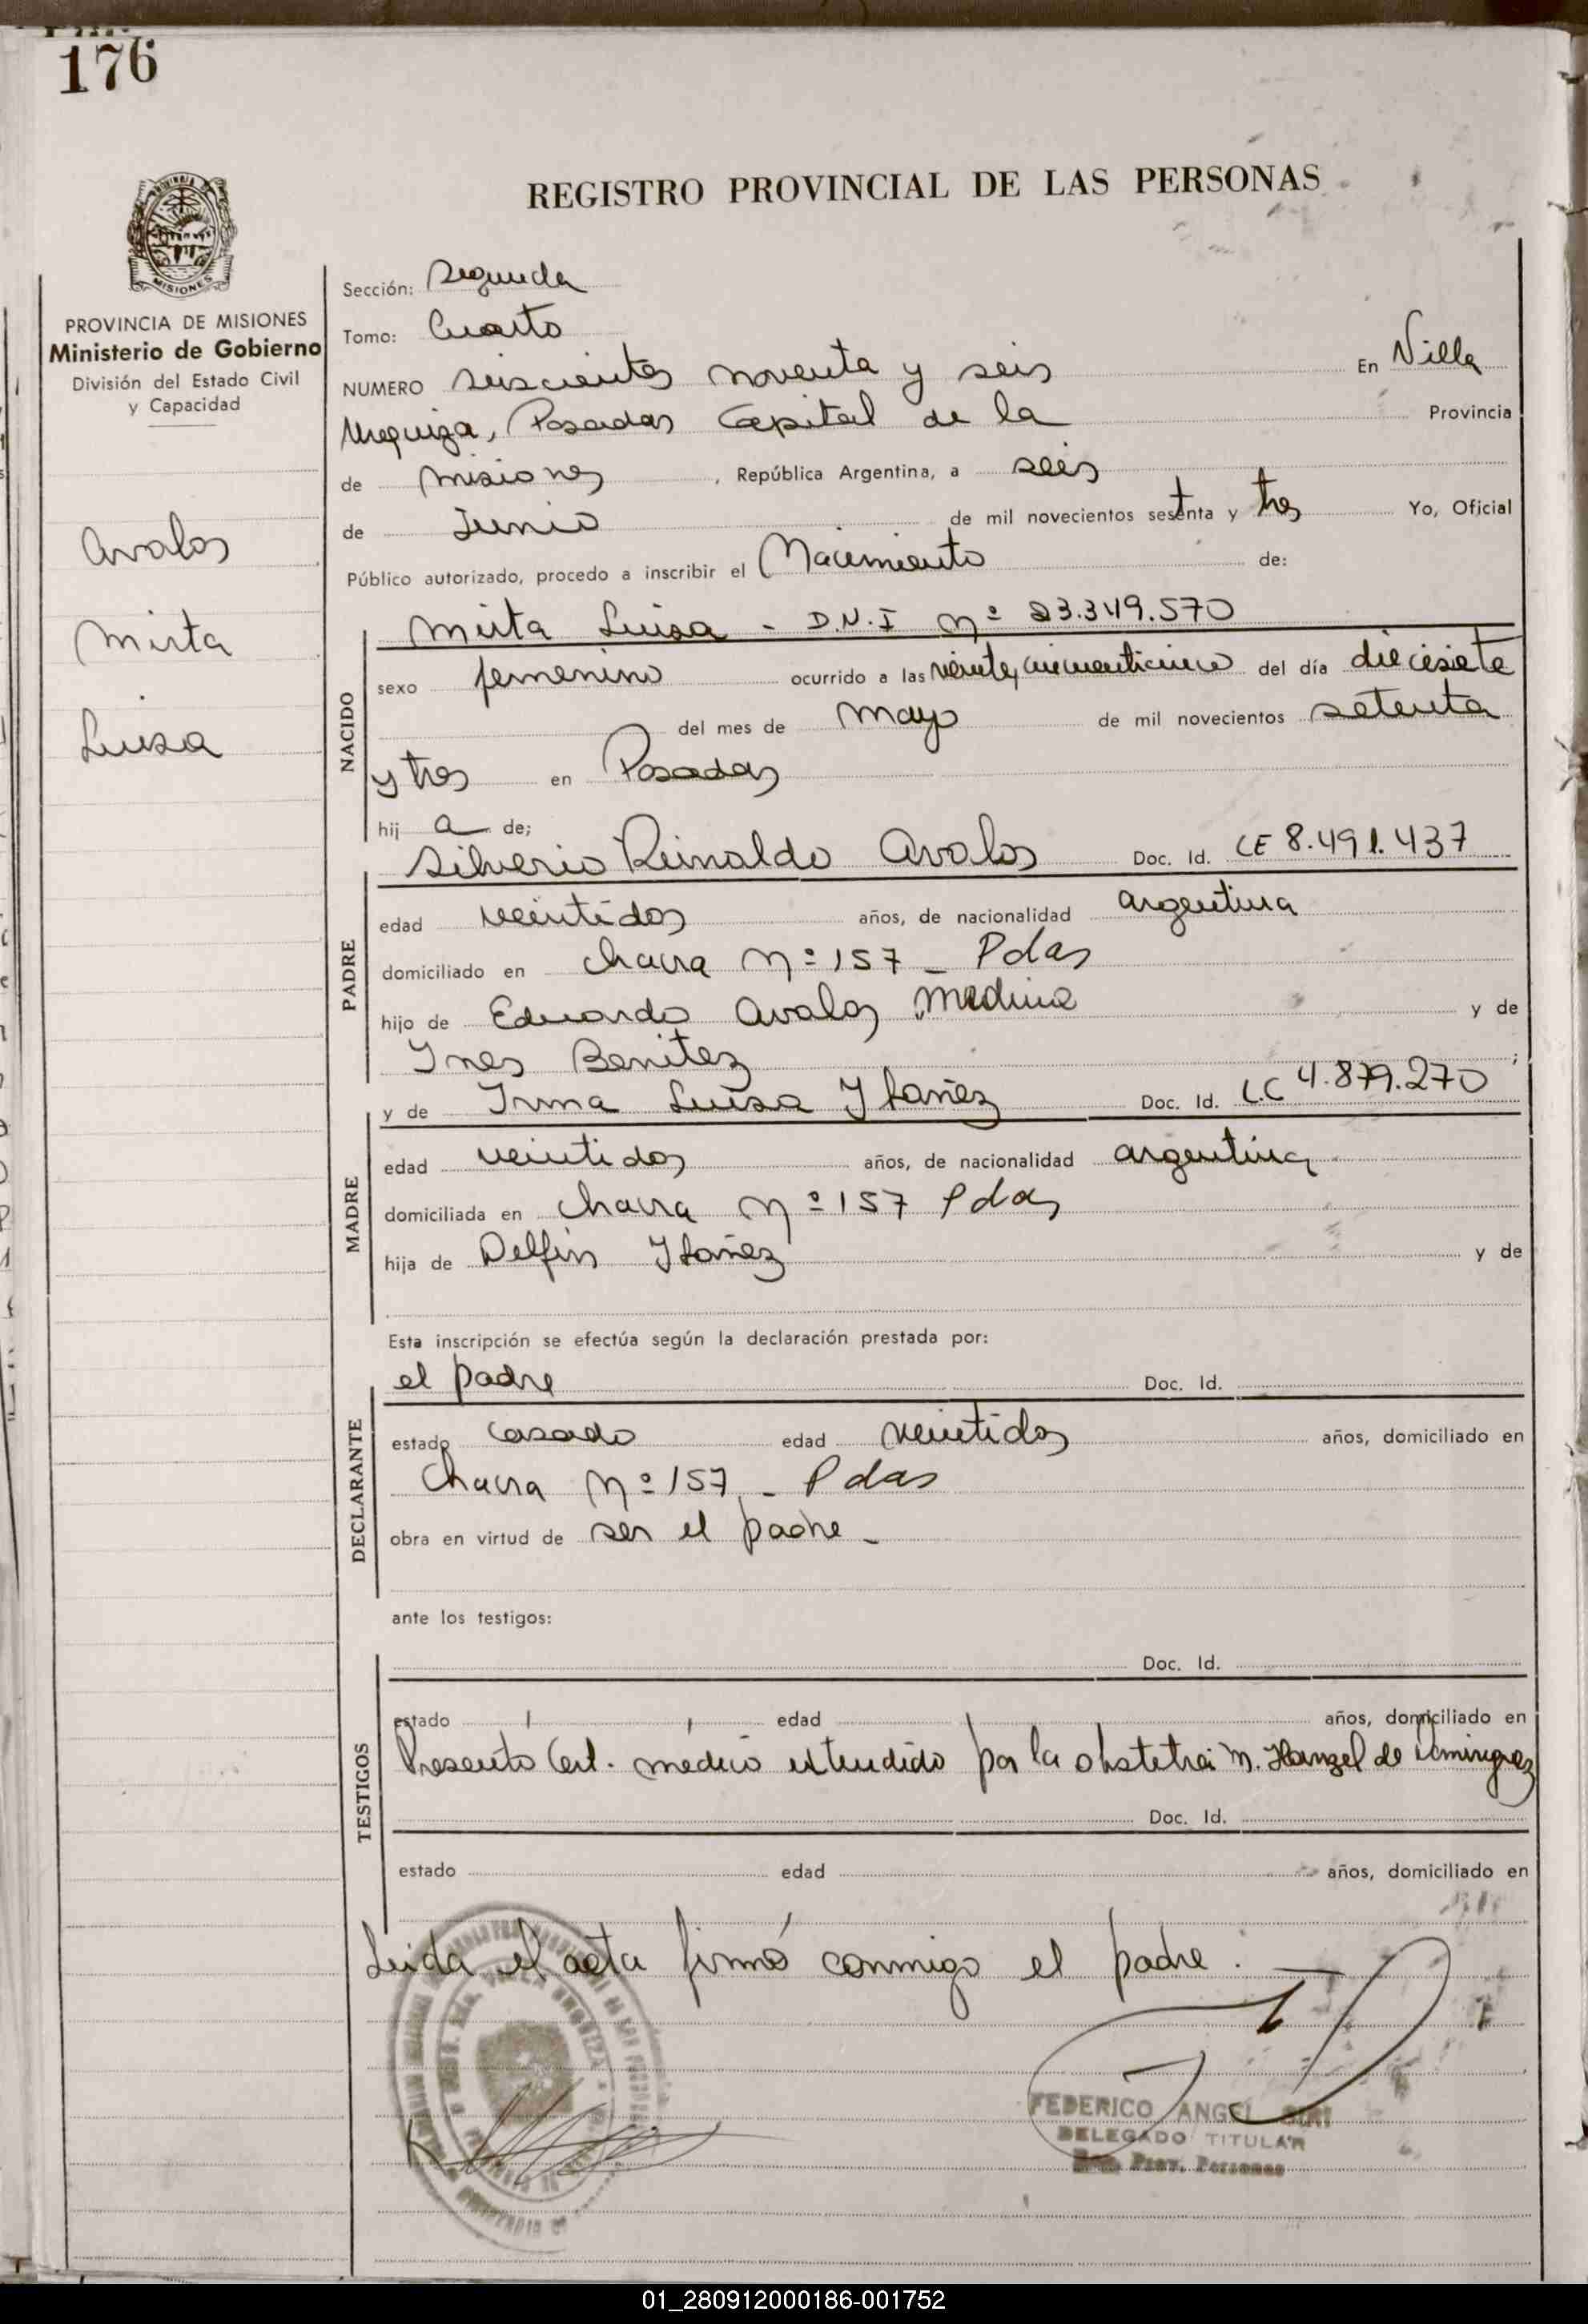 176
REGISTRO PROVINCIAL DE LAS PERSONAS
MISIONES
PROVINCIA DE MISIONES
Ministerio de Gobierno
División del Estado Civil
y Capacidad
Avalos
Mirta
Luisa
Sección: Segunda
Tomo: Cuarto
NUMERO seiscientos noventa y seis En Villa
Urquiza, Posadas Capital de la Provincia
de Misiones, República Argentina, a seis
de Junio de mil novecientos setenta y tres Yo, Oficial
Público autorizado, procedo a inscribir el Nacimiento de:
Mirta Luisa - D.N.I Nº 23.349.570
NACIDO
sexo femenino ocurrido a las veinte, cincuenticinco del día diecisiete
del mes de mayo de mil novecientos setenta
y tres en Posadas
hij a de;
Silverio Reinaldo Avalos Doc. Id. CE 8.491.437
PADRE
edad veintidos años, de nacionalidad argentina
domiciliado en Chacra Nº 157 - Pdas
hijo de Eduardo Avalos Medina y de
Ines Benitez ;
y de Irma Luisa Ybañez Doc. Id. L.C 4.879.270
MADRE
edad veintidos años, de nacionalidad argentina
domiciliada en Chacra Nº 157 Pdas
hija de Delfin Ybañez y de
Esta inscripción se efectúa según la declaración prestada por:
el padre Doc. Id.
DECLARANTE
estado casado edad veintidos años, domiciliado en
Chacra Nº 157 - Pdas
obra en virtud de ser el padre -
ante los testigos:
Doc. Id.
TESTIGOS
estado edad años, domiciliado en
Presento Cert. medico extendido por la obstetra M. Hanzel de Dominguez
Doc. Id.
estado edad años, domiciliado en
Leida el acta firmó conmigo el padre.
FEDERICO ANGEL
DELEGADO TITULAR
Prov. Personas
01_280912000186-001752